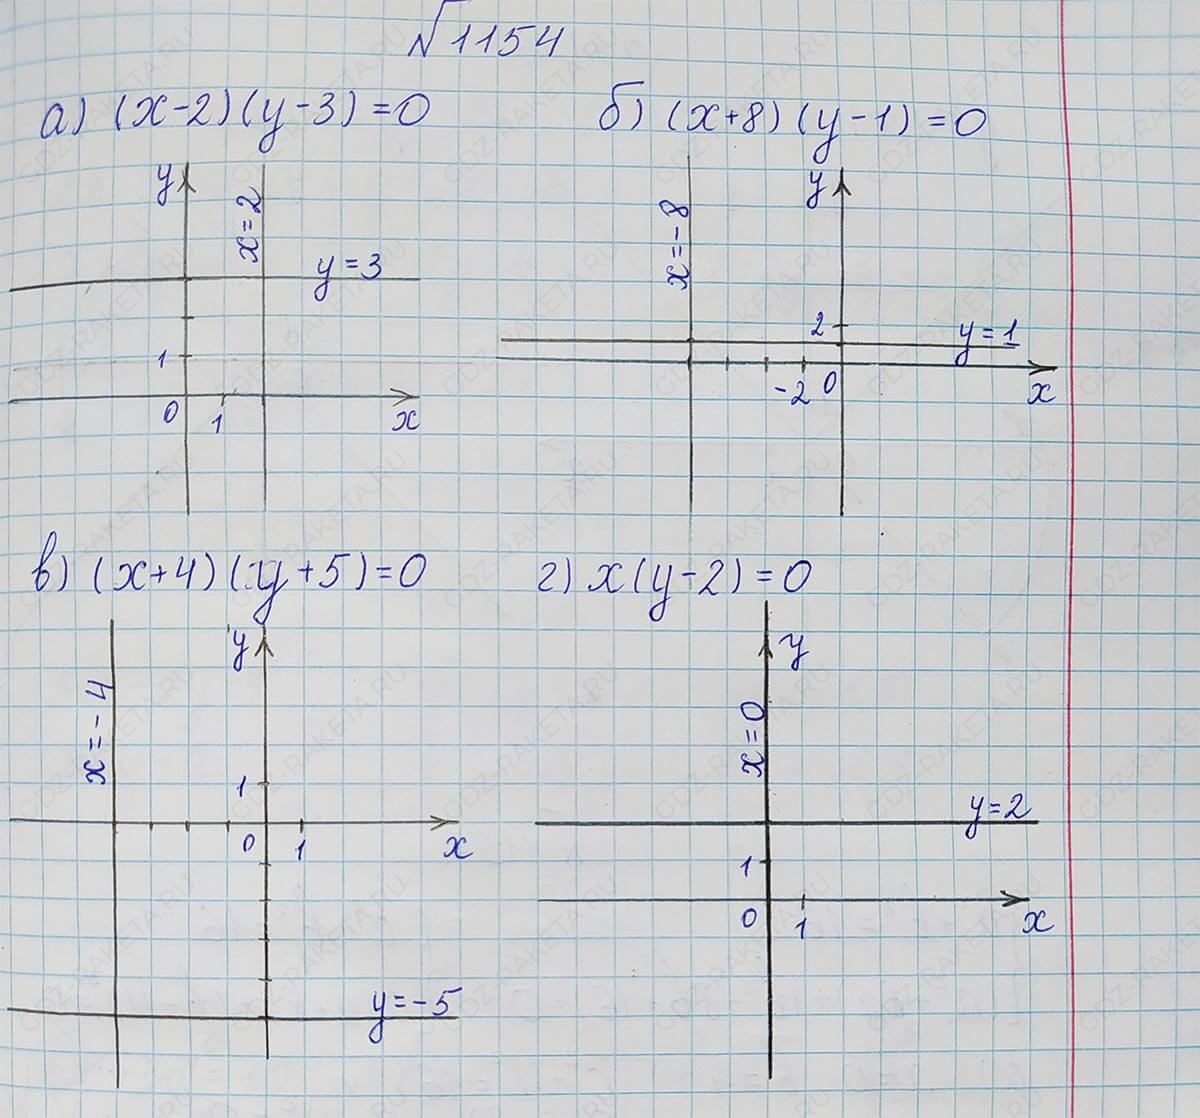 №1154
а) (x-2)(y-3)=0
б) (x+8)(y-1)=0
y
x=2
y=3
1
0
1
x
x=-8
y
2
y=1
-2
0
x
в) (x+4)(y+5)=0
г) x(y-2)=0
x=-4
y
1
0
1
x
y=-5
y
x=0
y=2
1
0
1
x
GDZ-RAKETA.RU